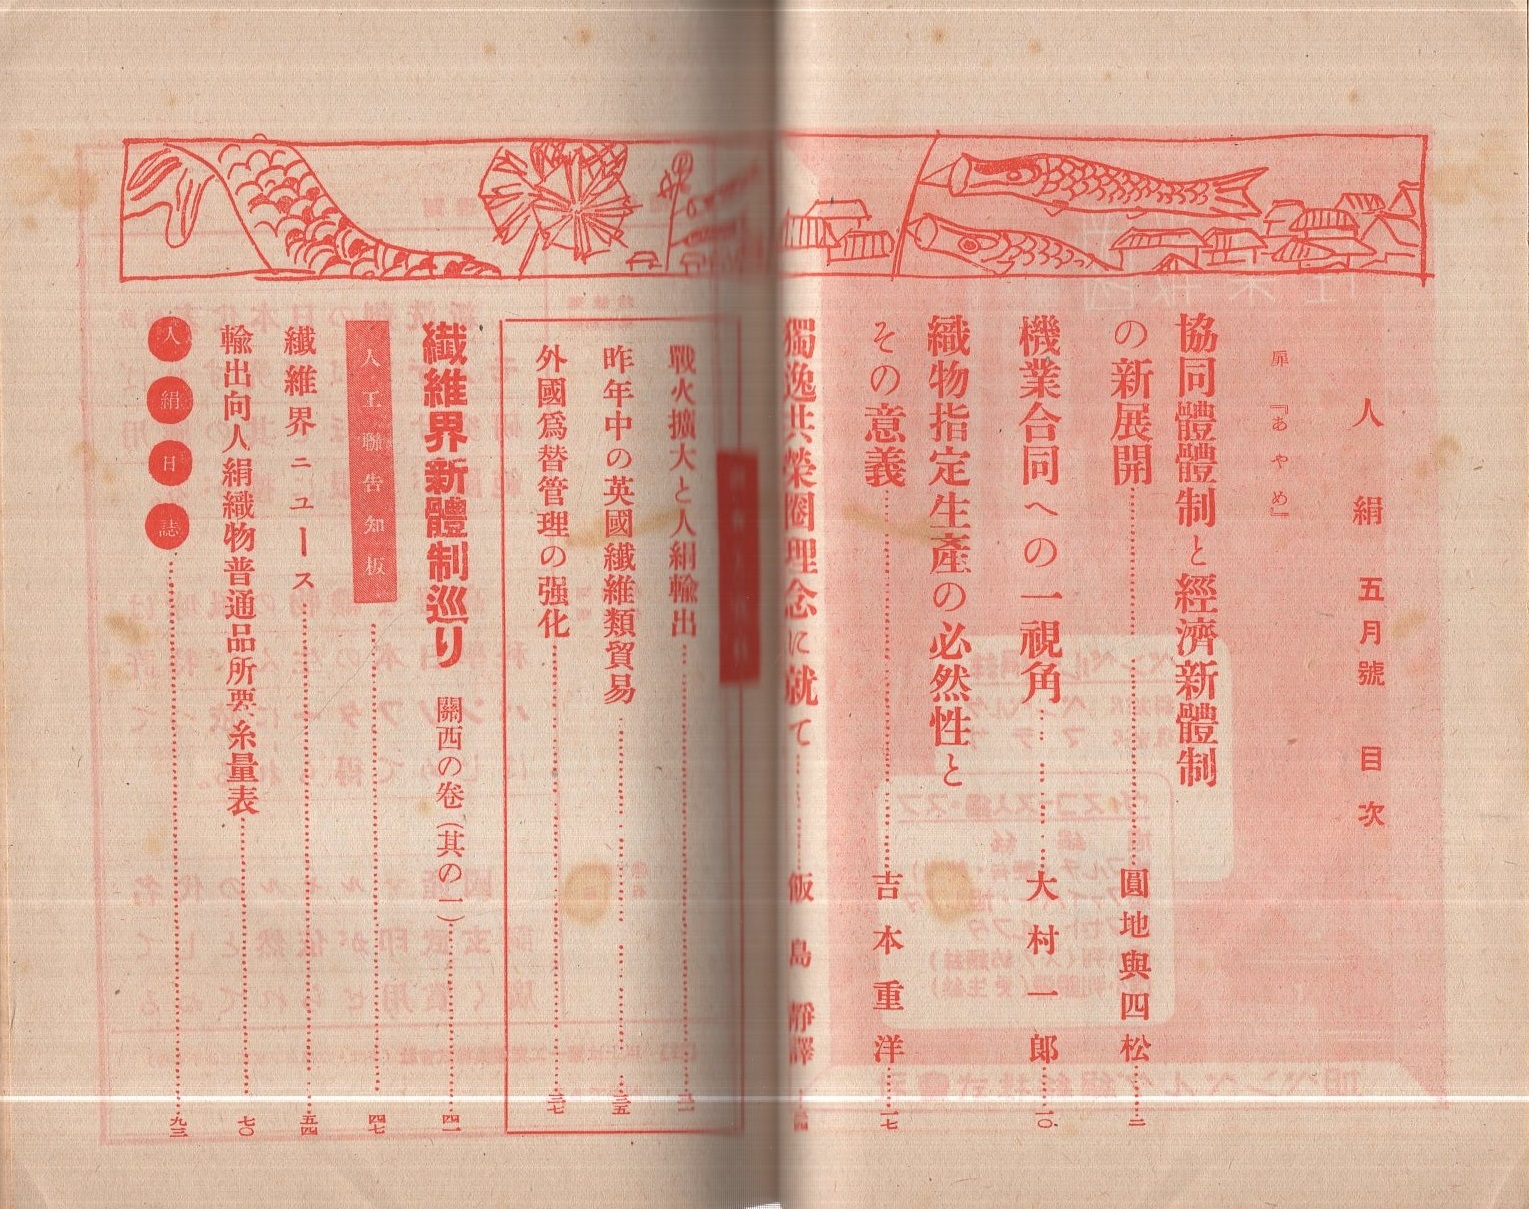 人絹 五月號 目次
扉『あやめ』
協同體體制と經濟新體制
の新展開……圓地與四松……二
機業合同への一視角……大村一郎……一〇
織物指定生產の必然性と
その意義……吉本重洋……一七
獨逸共榮圈理念に就て……飯島靜譯
戰火擴大と人絹輸出
昨年中の英國纖維類貿易……三五
外國爲替管理の强化……三七
纖維界新體制巡り 關西の卷(其の一)……四一
人工聯告知板……四七
纖維界ニュース……五四
輸出向人絹織物普通品所要糸量表……七〇
人絹日誌……九三